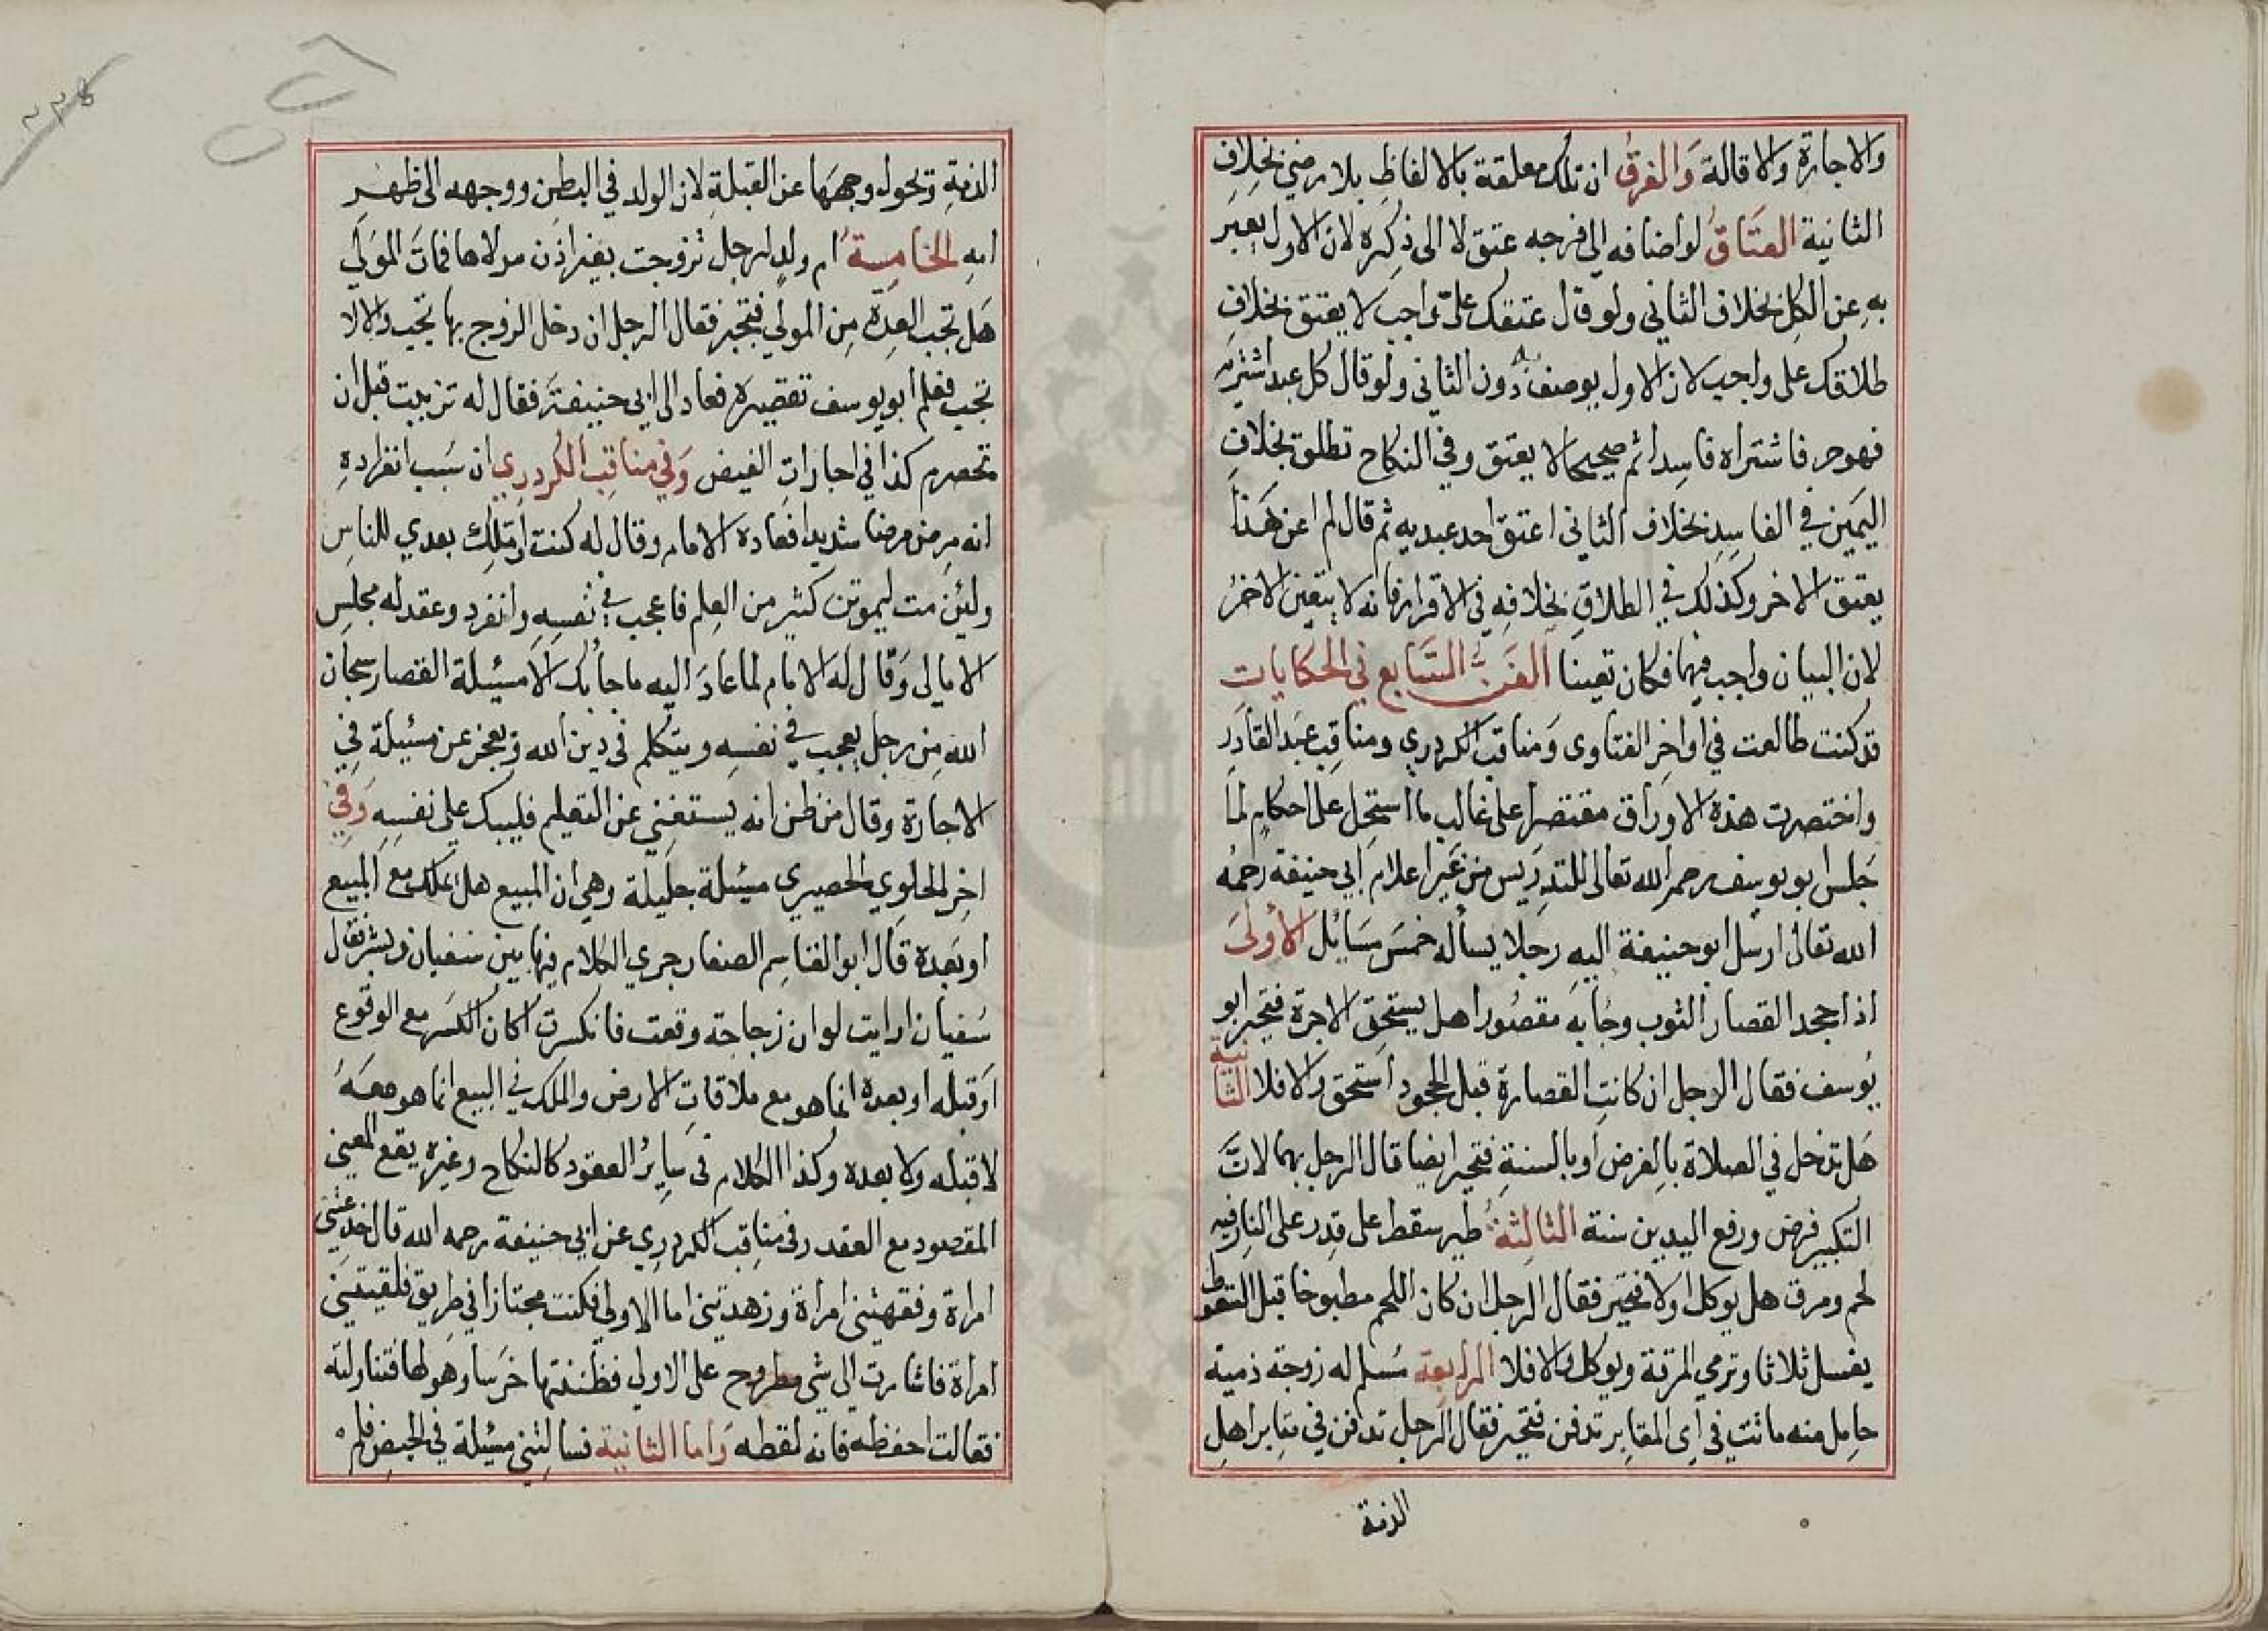 والاجارة والاقالة والفرق ان تلك معلقة بالالفاظ بلا رضي بخلاف
الثانية العتاق لو اضافه الى فرجه عتق لا الى ذكره لان الاول يعبر
به عن الكل بخلاف الثاني ولو قال عتقك علىّ واجب لا يعتق بخلاف
طلاقك على واجب لان الاول يوصف به دون الثاني ولو قال كل عبد اشتريه
فهو حر فاشتراه فاسدا ثم صحيحا لا يعتق وفي النكاح تطلق بخلاف
اليمين في الفاسد بخلاف الثاني اعتق احد عبديه ثم قال لم اعن هذا
يعتق الاخر وكذلك في الطلاق بخلافه في الاقرار فانه لا يتعين الاخر
لان البيان واجب فيهما فكان تعينا الفن السابع في الحكايات
قد كنت طالعت في اواخر الفتاوى ومناقب الكردري ومناقب عبد القادر
واختصرت هذه الاوراق مقتصرا على غالب ما استحل على احكام لما
جلس ابو يوسف رحمر الله تعالى للتدريس من غير اعلام ابي حنيفة رحمه
الله تعالى ارسل ابو حنيفة اليه رجلا يساله خمس مسائل الاولى
اذا جحد القصار الثوب وجا به مقصورا هل يستحق الاجرة فتحير ابو
يوسف فقال الرجل ان كانت القصارة قبل الجحود استحق والا فلا الثانية
هل تدخل في الصلاة بالفرض او بالسنة فتحير ايضا قال الرجل بهما لان
التكبير فرض ورفع اليدين سنة الثالثة طير سقط على قدر على النار فيه
لحم ومرق هل يوكل او لا فتحير فقال الرجل ان كان اللحم مطبوخا قبل السقوط
يغسل ثلاثا وترمي المرقة ويوكل والا فلا الرابعة مسلم له زوجة ذمية
حامل منه ماتت في اي المقابر تدفن فتحير فقال الرجل تدفن في مقابر اهل
الذمة
الذمة وتحول وجهها عن القبلة لان الولد في البطن ووجهه الى ظهر
امه الخامسة ام ولد لرجل تزوجت بغير اذن مولاها فمات المولى
هل تجب العدة من المولى فتحير فقال الرجل ان دخل الزوج بها تجب والا لا
تجب فعلم ابو يوسف تقصيره فعاد الى ابي حنيفة فقال له تزببت قبل ان
تحصرم كذا في اجارات الفيض وفي مناقب الكردري ان سبب انفراده
انه مرض مرضا شديدا فعاده الامام وقال له كنت املك بعدي للناس
ولئن مت ليموتن كثير من العلم فاعجب في نفسه وانفرد وعقد له مجلس
الامالى وقال له الامام لما عاد اليه ما جا بك الا مسئلة القصار سبحان
الله من رجل يعجب في نفسه ويتكلم في دين الله ويعجز عن مسئلة في
الاجارة وقال من ظن انه يستغني عن التعليم فليبك على نفسه وفي
اخر الحاوي الحصيري مسئلة جليلة وهي ان المبيع هل يملك مع المبيع
او بعده قال ابو القاسم الصفار جري الكلام فيها بين سفيان وبشر فقال
سفيان ارايت لو ان زجاجة وقعت فانكسرت اكان الكسر مع الوقوع
او قبله او بعده انما هو مع ملاقات الارض والملك في البيع انما هو معه
لا قبله ولا بعده وكذا الكلام في سائر العقود كالنكاح وغيره يقع المعنى
المقصود مع العقد وفي مناقب الكردري عن ابي حنيفة رحمه الله قال خدعتني
امراة وفقهتني امراة وزهدتني اما الاولي فكنت مجتازا في طريق فلقيتني
امراة فاشارت الى شي مطروح على الاول فظننتها خرسا وهو لها فتناولته
فقالت احفظه فانه لقطه واما الثانية فسالتني مسئلة في الحيض فلم